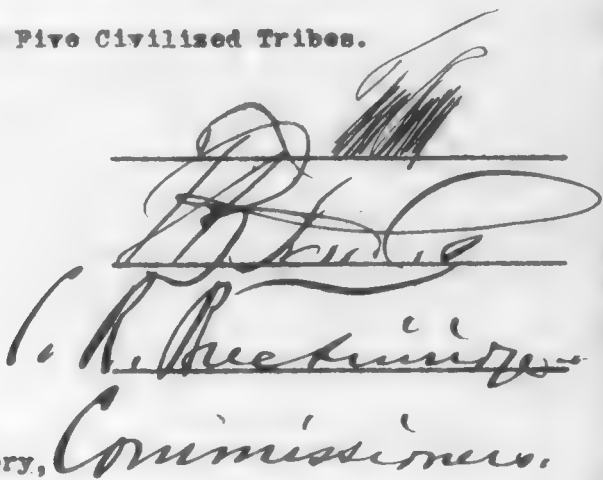 Five Civilized Tribes.
C. R. Breckinridge
ry, Commissioners.